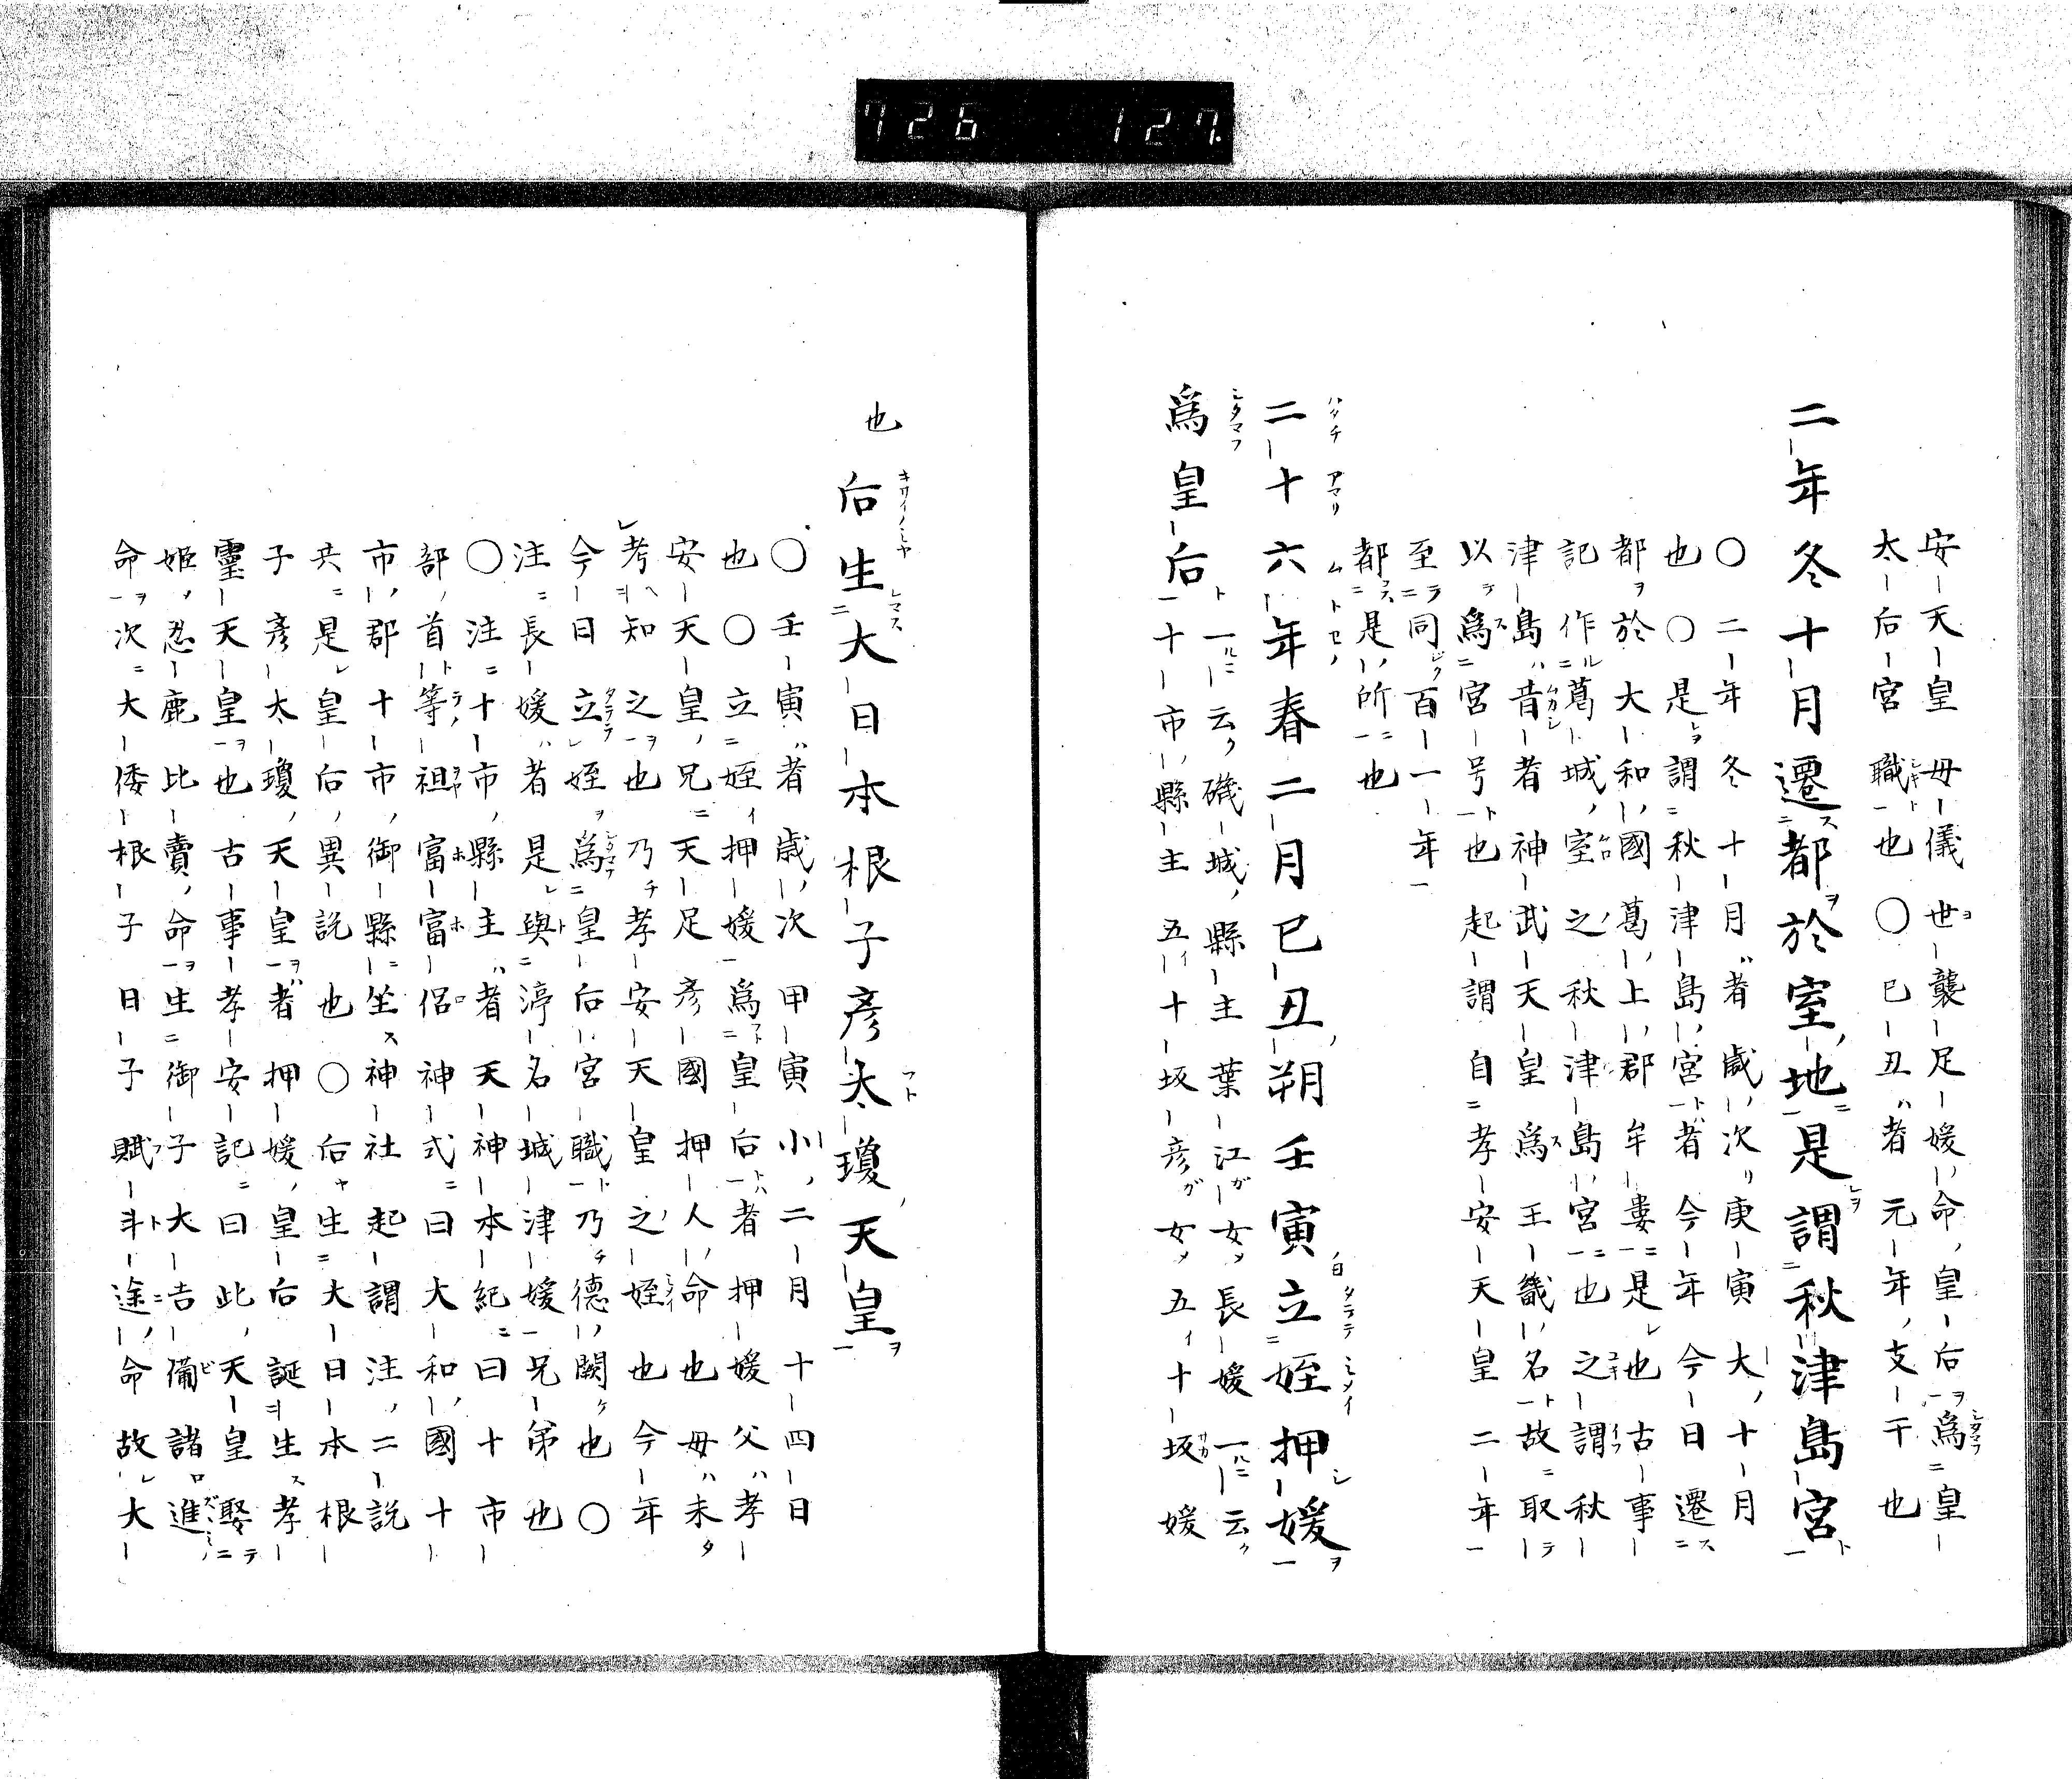 726 127.
安天皇母儀世襲足媛命皇后為皇
太后宮職也〇己丑者元年支干也
二年冬十月遷都於室地是謂秋津島宮
〇二年冬十月者歲次庚寅大十月
也〇是謂秋津島宮者今年今日遷
都於大和國葛上郡牟婁是也古事
記作葛城室之秋津島宮也之謂秋
津島昔者神武天皇為王畿名故取
以為宮号也起謂自孝安天皇二年
至同百一年
都是所也
二十六年春二月己丑朔壬寅立姪押媛
為皇后一云磯城縣主葉江女長媛一云
十市縣主五十坂彦女五十坂媛
也
后生大日本根子彦太瓊天皇
〇壬寅者歲次甲寅小二月十四日
也〇立姪押媛為皇后者押媛父孝
安天皇兄天足彦國押人命也母未
考知之也乃孝安天皇之姪也今年
今日立姪為皇后宮職乃德闕也〇
注長媛者是與渟名城津媛兄弟也
〇注十市縣主者天神本紀曰十市
部首等祖富富侶神式曰大和國十
市郡十市御縣坐神社起謂注二說
共是皇后異說也〇后生大日本根
子彦太瓊天皇者押媛皇后誕生孝
靈天皇也古事孝安記曰此天皇娶
姪忍鹿比賣命生御子大吉備諸進
命次大倭根子日子賦斗迩命故大